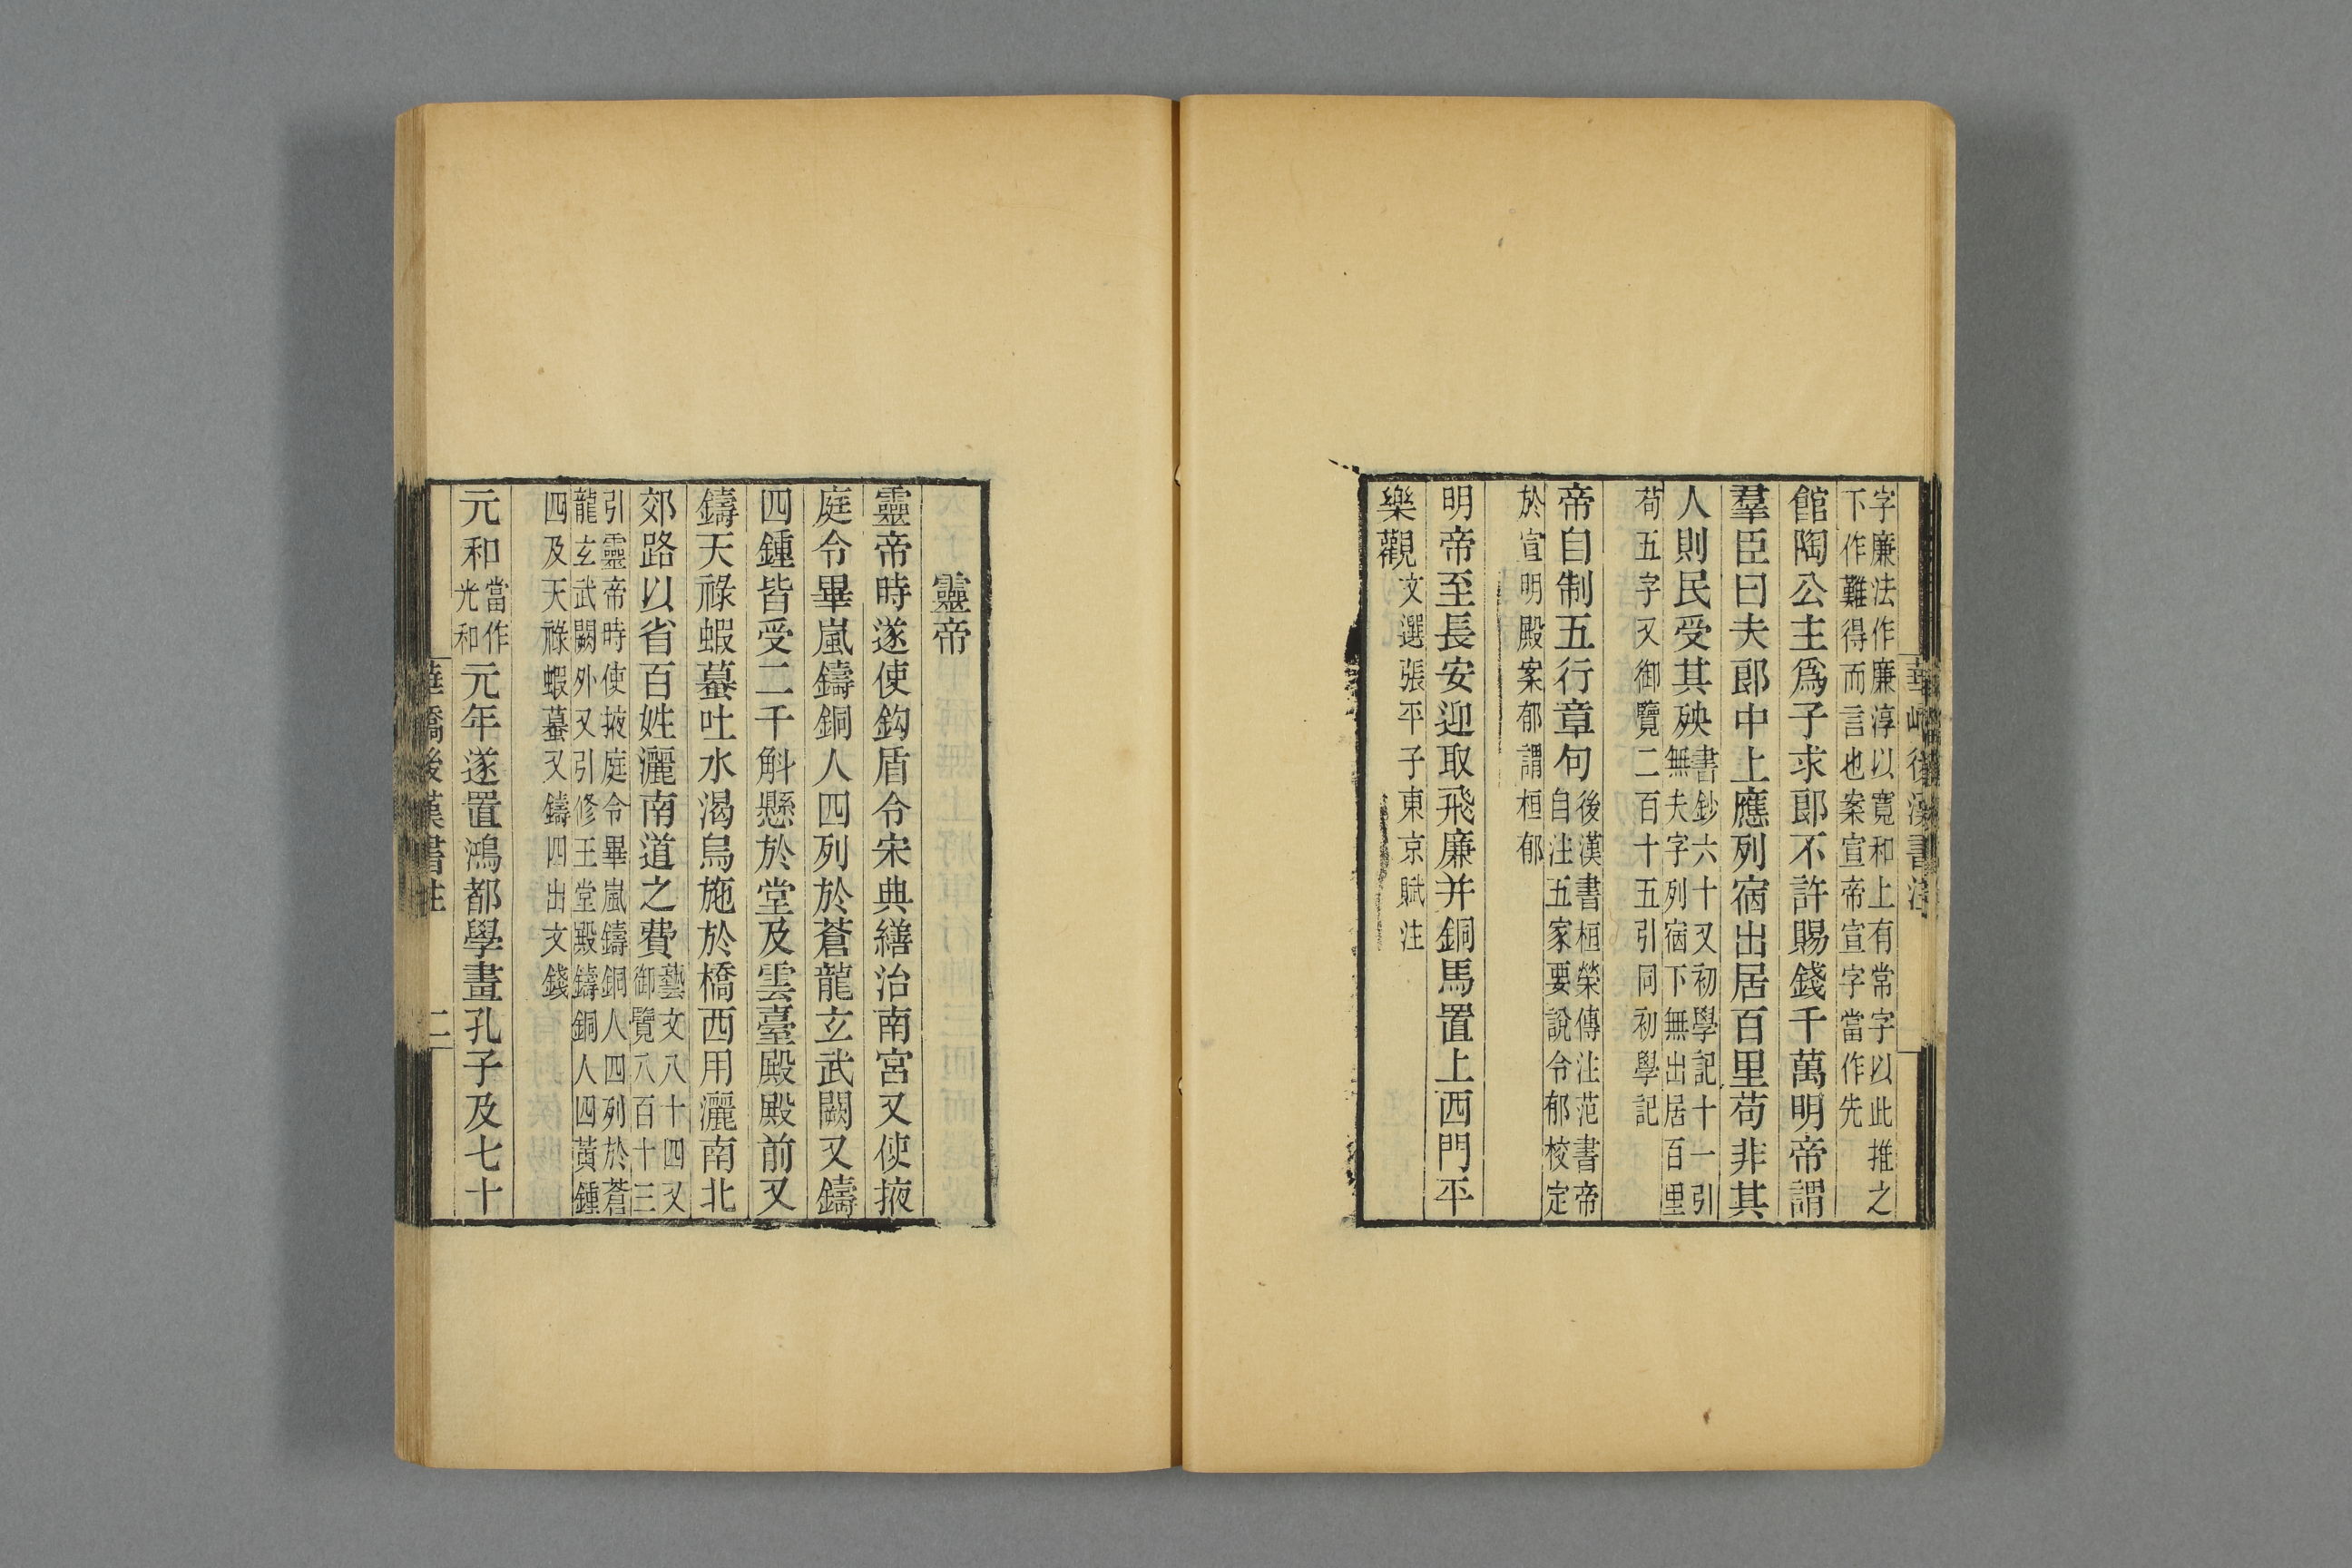 字廉法作廉淳以寛和上有常字以此推之
下作難得而言也案宣帝宣字當作先
館陶公主爲子求郎不許賜錢千萬明帝謂
羣臣曰夫郎中上應列宿出居百里苟非其
人則民受其殃書鈔六十又初學記十一引無夫字列宿下無出居百里
苟五字又御覽二百十五引同初學記
帝自制五行章句後漢書桓榮傳注范書帝自注五家要說令郁校定
於宣明殿案郁謂桓郁
明帝至長安迎取飛廉并銅馬置上西門平
樂觀文選張平子東京賦注
靈帝
靈帝時遂使鈎盾令宋典繕治南宮又使掖
庭令畢嵐鑄銅人四列於蒼龍玄武闕又鑄
四鍾皆受二千斛懸於堂及雲臺殿殿前又
鑄天祿蝦蟇吐水渴烏施於橋西用灑南北
郊路以省百姓灑南道之費藝文八十四又御覽八百十三
引靈帝時使掖庭令畢嵐鑄銅人四列於蒼
龍玄武闕外又引修王堂殿鑄銅人四黃鍾
四及天祿蝦蟇又鑄四出文錢
元和當作光和元年遂置鴻都學畫孔子及七十
華嶠後漢書注 二